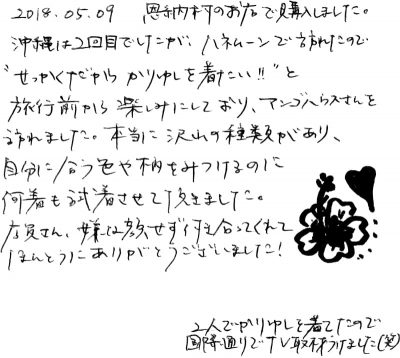 2018.05.09　恩納村のお店で購入しました。
沖縄は2回目でしたが、ハネムーンで訪れたので
"せっかくだから かりゆしを着たい!!" と
旅行前から 楽しみにしており、マンゴハウスさんを
訪れました。本当に 沢山の種類があり、
自分に合う色や柄をみつけるのに
何着も試着させて頂きました。
店員さん、嫌な顔せず付き合ってくれて
ほんとうにありがとうございました!
2人でかりゆしを着てたので
国際通りでTV取材うけました(笑)